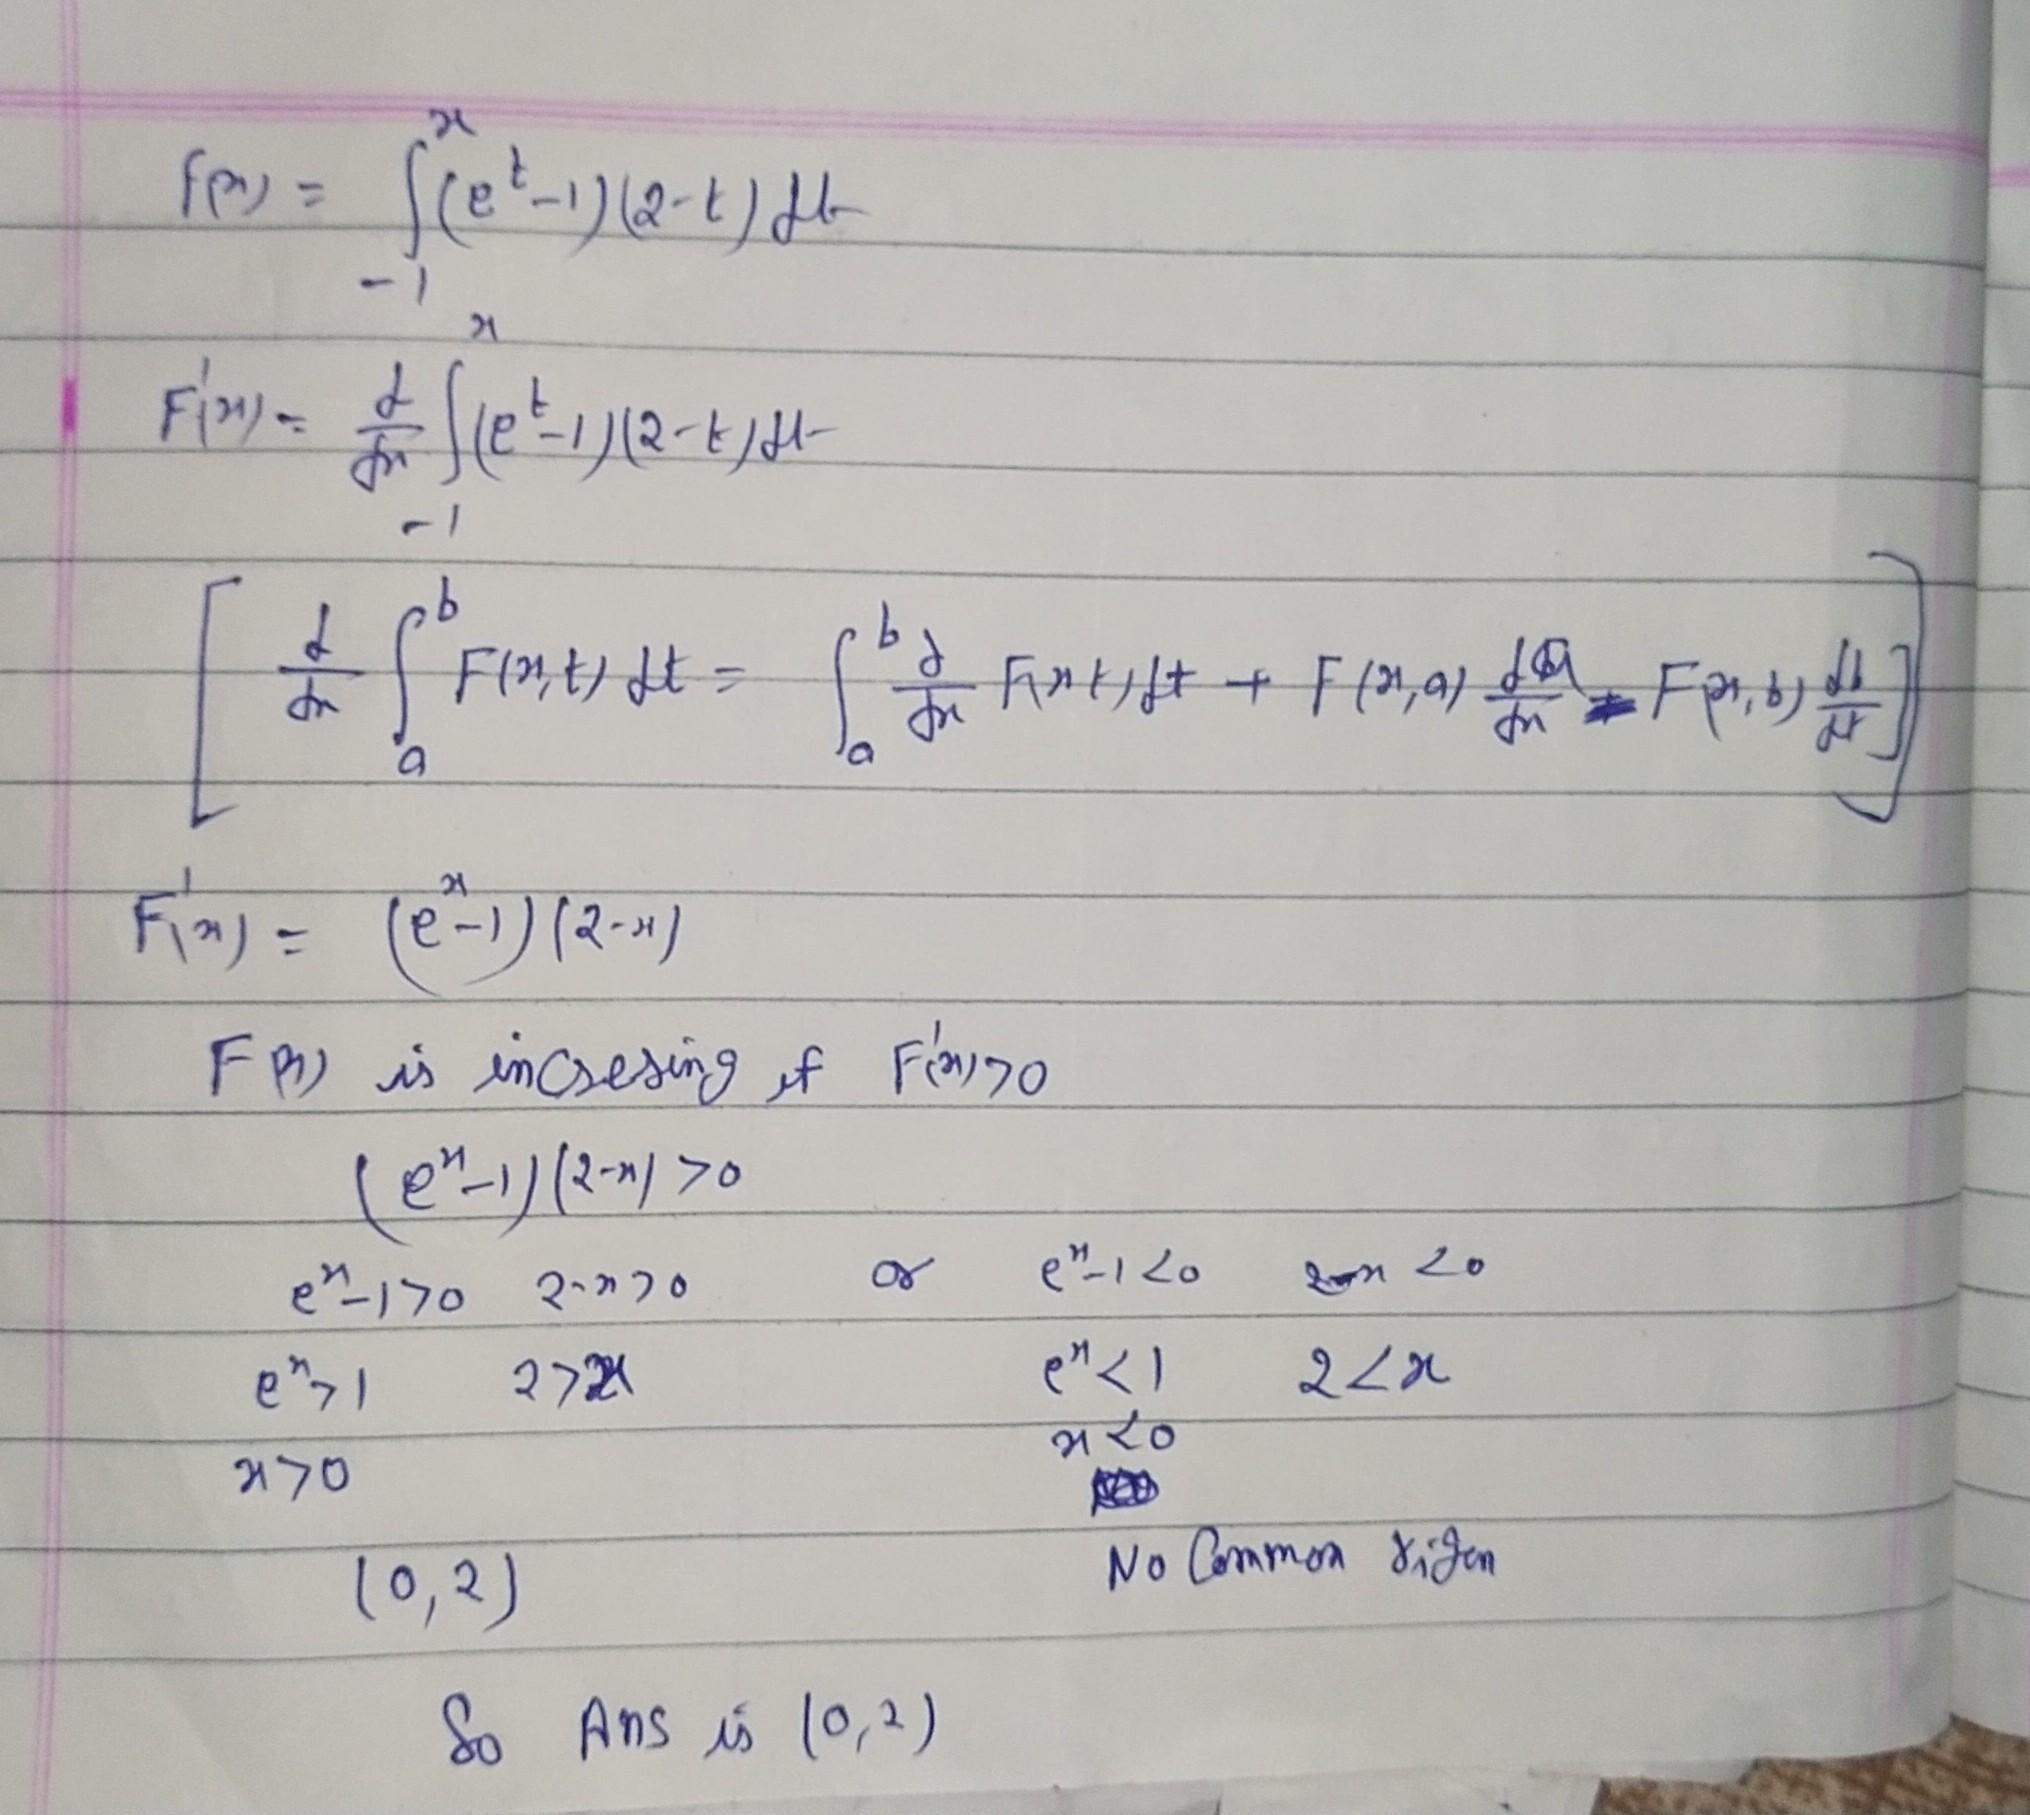 f(x) = ∫_{-1}^{x} (e^t - 1)(2-t) dt
F'(x) = d/dx ∫_{-1}^{x} (e^t - 1)(2-t) dt
[ d/dx ∫_a^b F(x,t) dt = ∫_a^b ∂/∂x F(x t) dt + F(x,a) da/dx - F(x,b) db/dt ]
F'(x) = (e^x - 1)(2-x)
F(x) is incresing if F'(x)>0
(e^x - 1)(2-x) >0
e^x - 1 >0 2-x >0 or e^x - 1 <0 2-x <0
e^x > 1 2 > x e^x < 1 2 < x
x < 0
x > 0
No Common rigen
(0,2)
So Ans is (0,2)